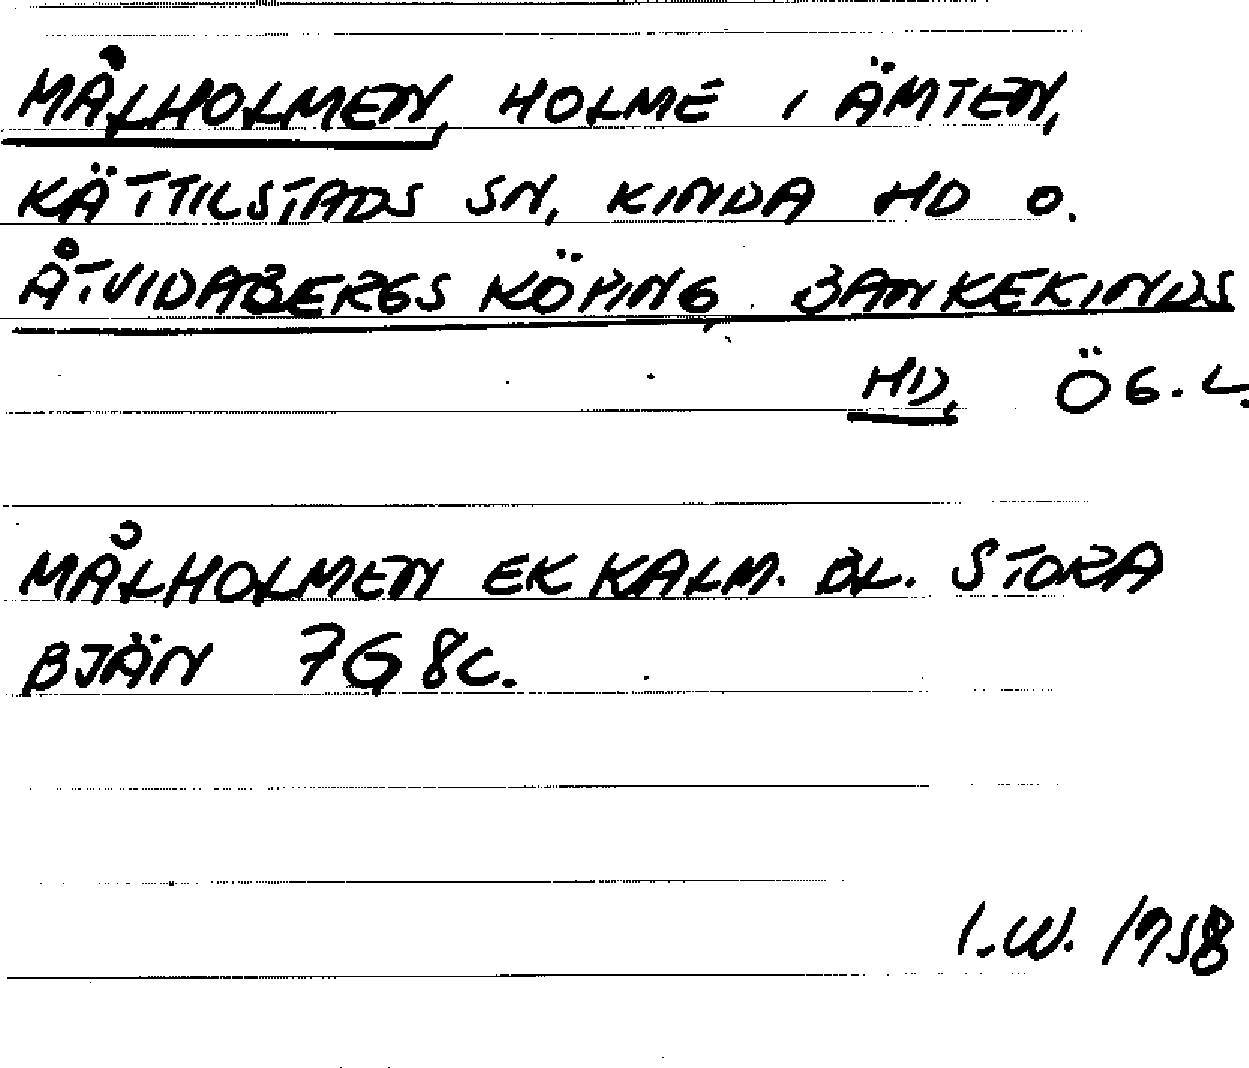 MÅLHOLMEN, HOLME I ÄMTEN,
KÄTTILSTADS SN, KINDA HD O.
ÅTVIDABERGS KÖPING, BANKEKINDS
HD, ÖG.L.
MÅLHOLMEN EK KALM. BL. STORA
BJÄN 7G 8C.
I.W. 1958